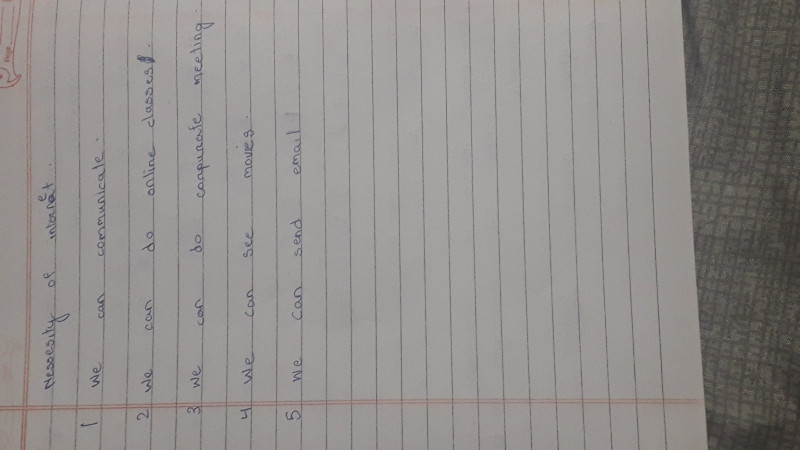 Nessesity of internet.
1 We can communicate.
2 We can do online classes.
3 We can do conpurate meeting.
4 We can see movies.
5 We can send email!